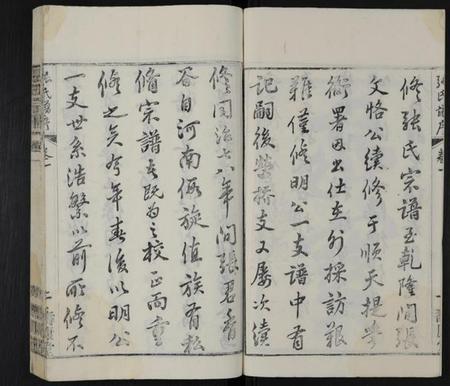 修張氏宗譜至乾隆間張
文恪公續修于順天提學
衙署因出仕在外採訪艱
難僅修明公一支譜中有
記嗣後榮橋支又屢次續
修同治七八年間張君香
谷自河南假旋值族有私
脩宗譜者既為之校正而重
修之矣今年春復以明公
一支世系浩繁以前所修不
張氏譜序
卷一